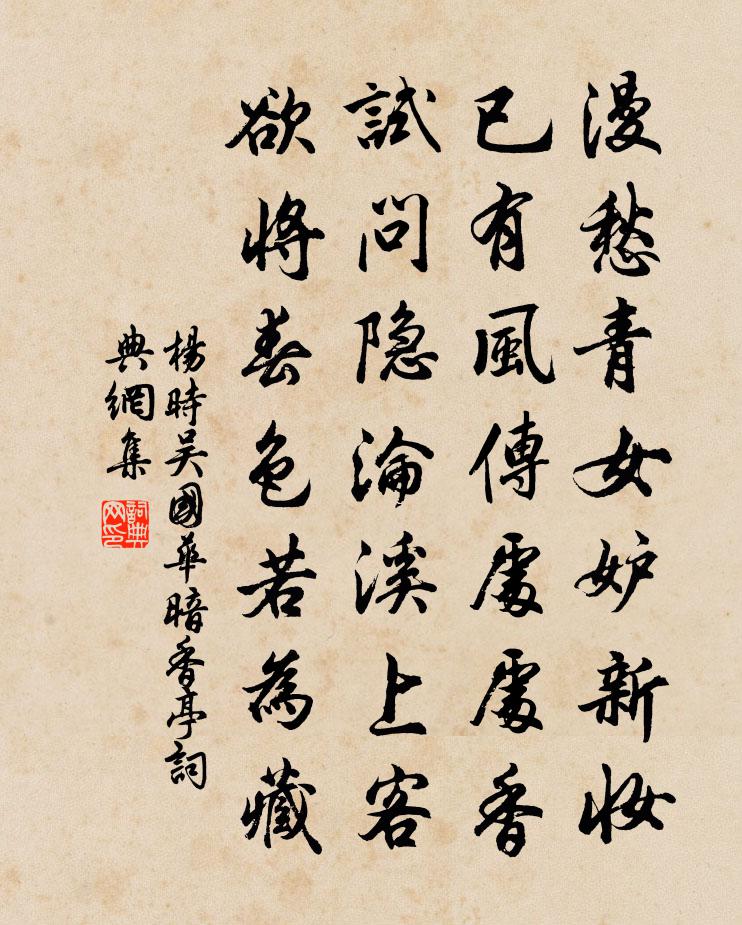 漫愁青女妒新妝
已有風傳處處香
試問隱淪溪上客
欲將春色若為藏
楊時吳國華暗香亭詞
典網集
詞典網印